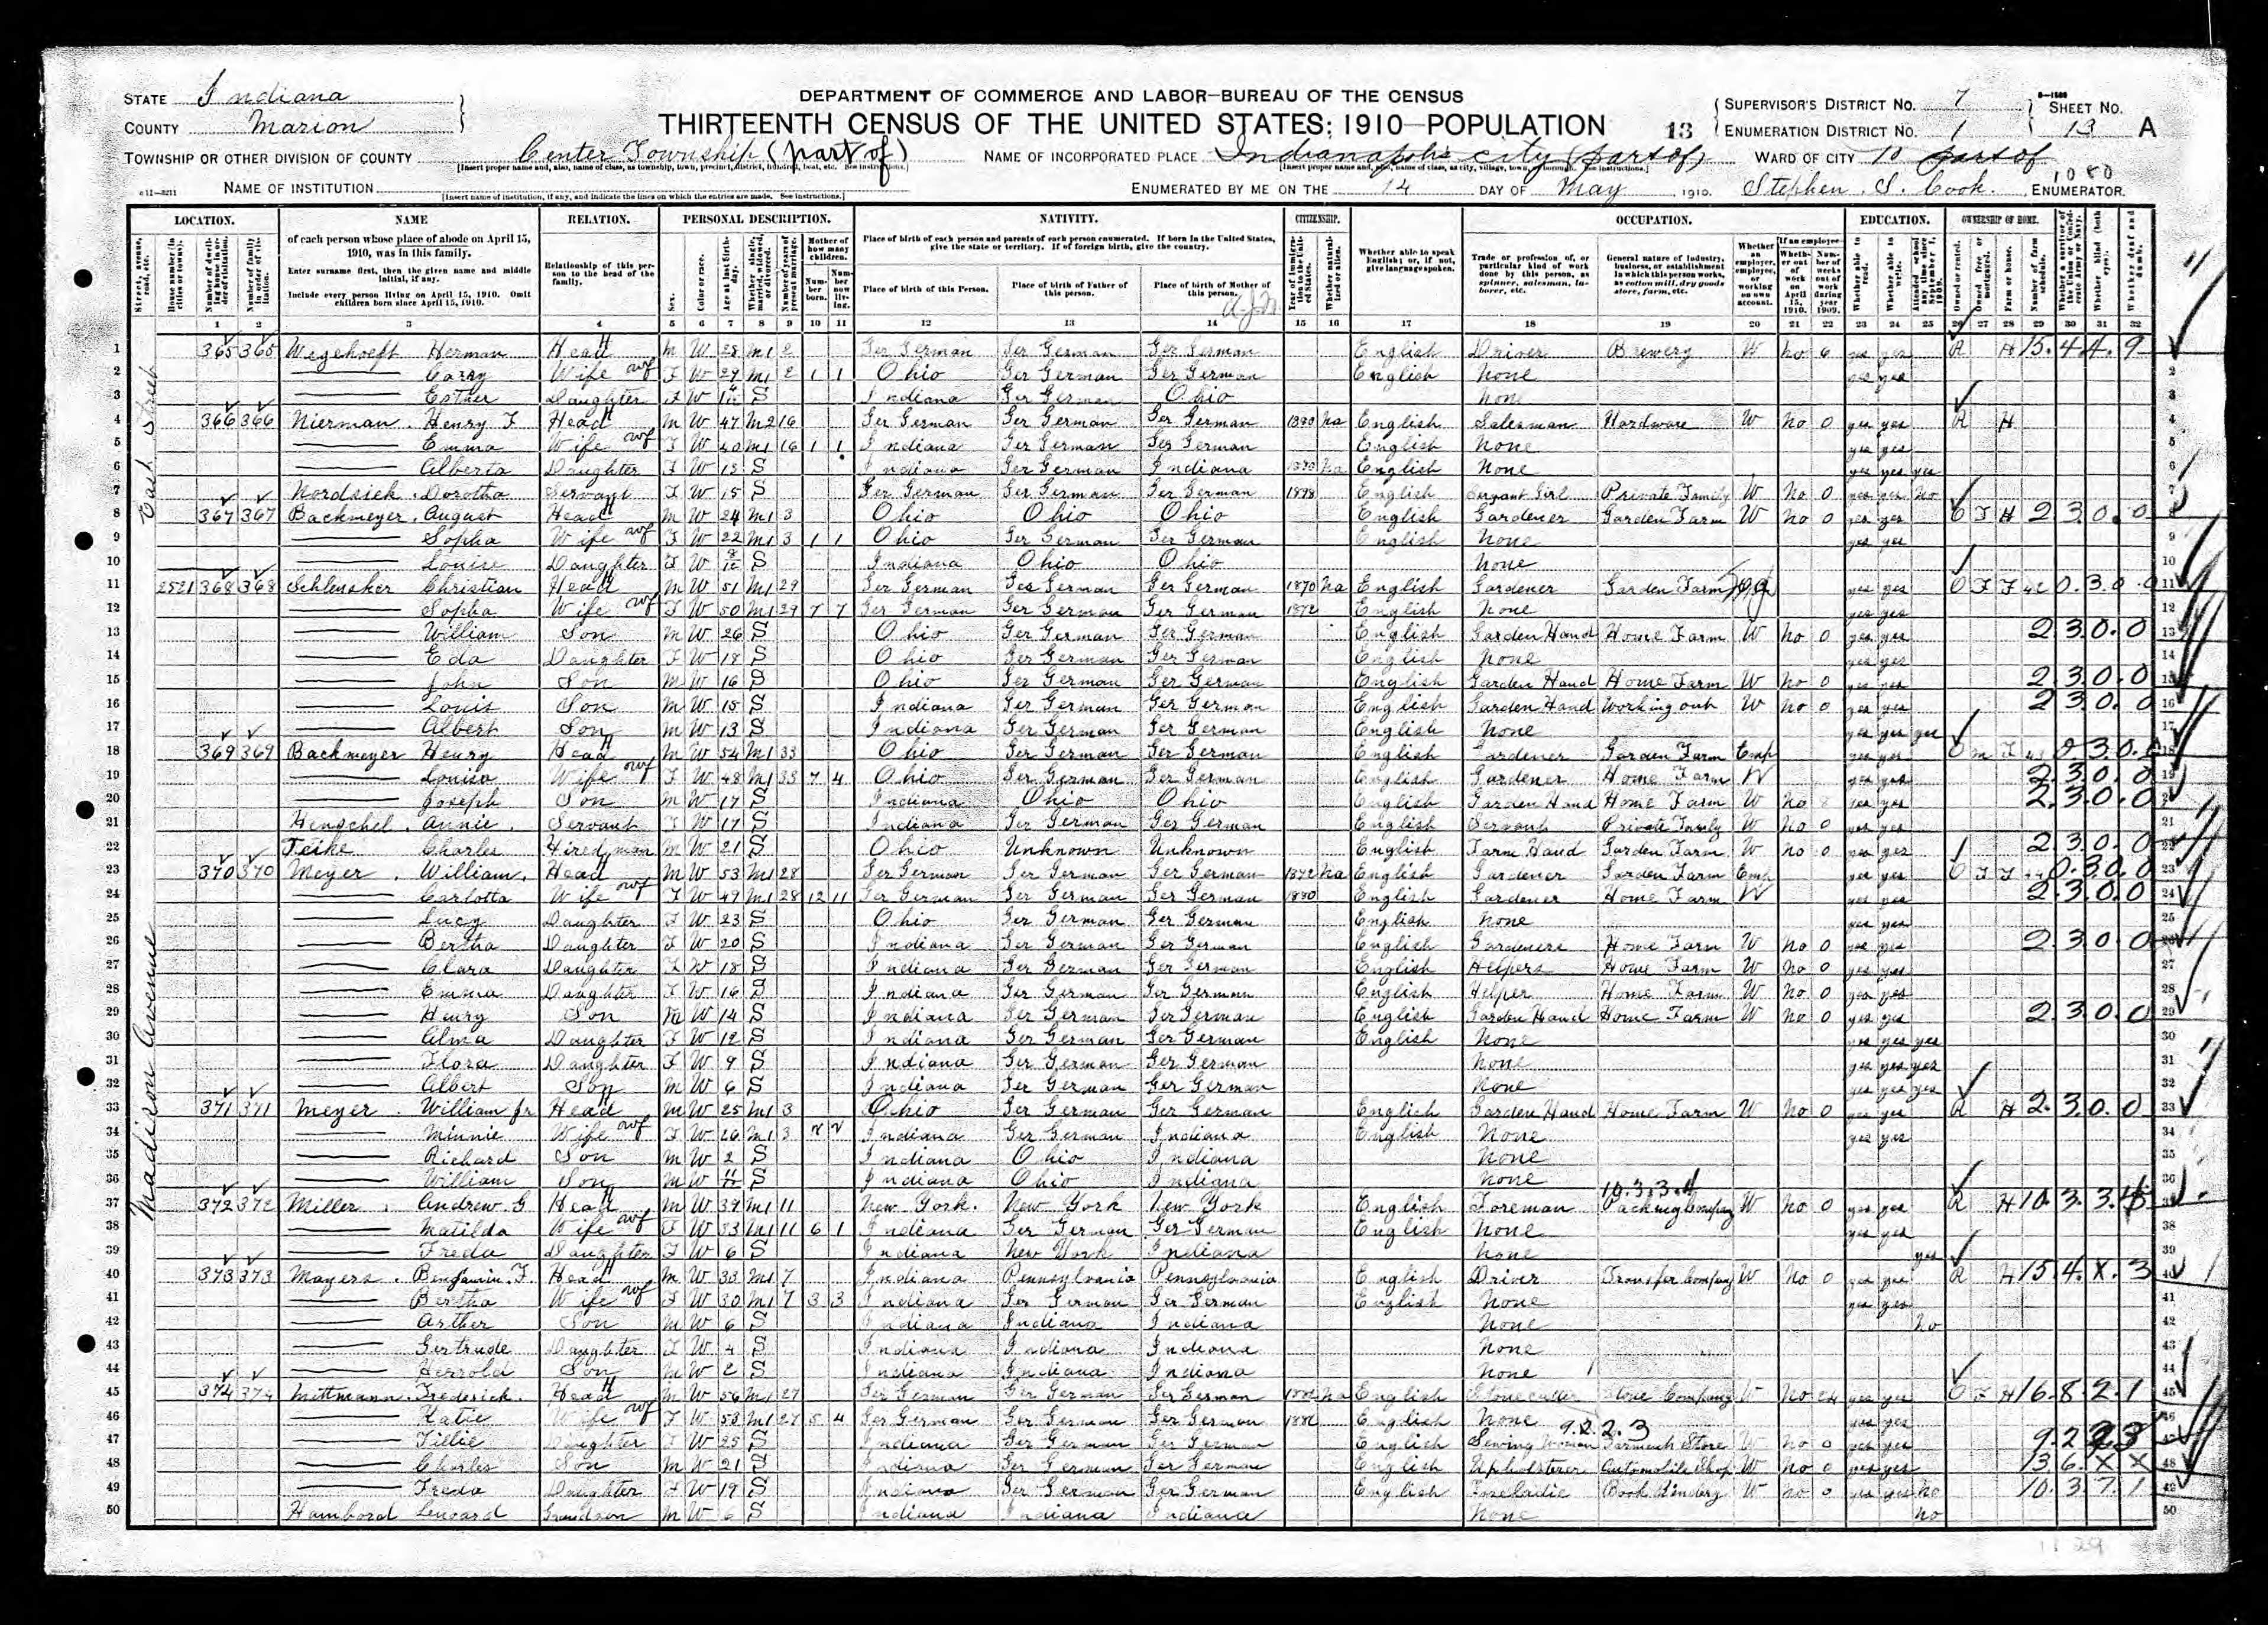 STATE Indiana
COUNTY Marion
DEPARTMENT OF COMMERCE AND LABOR—BUREAU OF THE CENSUS
THIRTEENTH CENSUS OF THE UNITED STATES: 1910—POPULATION
13
SUPERVISOR'S DISTRICT No. 7
ENUMERATION DISTRICT No. 1
SHEET No. 13 A
TOWNSHIP OR OTHER DIVISION OF COUNTY Center Township (part of)
NAME OF INCORPORATED PLACE Indianapolis city (part of)
WARD OF CITY 10 part of
1080
NAME OF INSTITUTION
[Insert name of institution, if any, and indicate the lines on which the entries are made. See instructions.]
ENUMERATED BY ME ON THE 14 DAY OF May, 1910. Stephen S. Cook. ENUMERATOR.
LOCATION. NAME RELATION. PERSONAL DESCRIPTION. NATIVITY. CITIZENSHIP. OCCUPATION. EDUCATION. OWNERSHIP OF HOME.
of each person whose place of abode on April 15, 1910, was in this family.
Enter surname first, then the given name and middle initial, if any.
Include every person living on April 15, 1910. Omit children born since April 15, 1910.
Relationship of this person to the head of the family.
Place of birth of each person and parents of each person enumerated. If born in the United States, give the state or territory. If of foreign birth, give the country.
Place of birth of this Person. Place of birth of Father of this person. Place of birth of Mother of this person.
Whether able to speak English; or, if not, give language spoken.
1 2 3 4 5 6 7 8 9 10 11 12 13 14 15 16 17 18 19 20 21 22 23 24 25 26 27 28 29 30 31 32
East Street
Madison Avenue
1 365 365 Wegehoeft Herman Head M W 28 M1 2 Ger German Ger German Ger German English Driver Brewery W no 6 yes yes R H 15.4.4.9
2 Carry Wife F W 27 M1 2 1 1 Ohio Ger German Ger German English None yes yes
3 Esther Daughter F W S Indiana Ger German Ohio None
4 366 366 Nierman Henry F Head M W 47 M2 16 Ger German Ger German Ger German 1880 na English Salesman Hardware W no 0 yes yes R H
5 Emma Wife F W 40 M1 16 1 1 Indiana Ger German Ger German English None yes yes
6 Alberta Daughter F W 15 S Indiana Ger German Indiana na English None yes yes yes
7 Nordsiek Dorotha Servant F W 15 S Ger German Ger German Ger German 1898 English Servant Girl Private Family W no 0 yes yes no
8 367 367 Backmeyer August Head M W 24 M1 3 Ohio Ohio Ohio English Gardener Garden Farm W no 0 yes yes O F H 2 3 0 0
9 Sopha Wife F W 22 M1 3 1 1 Ohio Ger German Ger German English None yes yes
10 Louise Daughter F W 8/12 S Indiana Ohio Ohio None
11 2521 368 368 Schlensker Christian Head M W 51 M1 29 Ger German Ger German Ger German 1870 na English Gardener Garden Farm yes yes O F F 42 0.3.0.0
12 Sopha Wife F W 50 M1 29 7 7 Ger German Ger German Ger German 1872 English None yes yes
13 William Son M W 26 S Ohio Ger German Ger German English Garden Hand Home Farm W no 0 yes yes 2 3 0 0
14 Eda Daughter F W 18 S Ohio Ger German Ger German English None yes yes
15 John Son M W 16 S Ohio Ger German Ger German English Garden Hand Home Farm W no 0 yes yes 2 3 0 0
16 Louis Son M W 15 S Indiana Ger German Ger German English Garden Hand Working out W no 0 yes yes 2 3 0 0
17 Albert Son M W 13 S Indiana Ger German Ger German English None yes yes yes
18 369 369 Backmeyer Henry Head M W 54 M1 33 Ohio Ger German Ger German English Gardener Garden Farm Emp yes yes O M F 43 0.3.0.0
19 Louisa Wife F W 48 M1 33 7 4 Ohio Ger German Ger German English Gardener Home Farm W yes yes 2 3 0 0
20 Joseph Son M W 17 S Indiana Ohio Ohio English Garden Hand Home Farm W no 8 yes yes 2 3 0 0
21 Henschel Annie Servant F W 17 S Indiana Ger German Ger German English Servant Private Family W no 0 yes yes
22 Teike Charles Hired man M W 21 S Ohio Unknown Unknown English Farm Hand Garden Farm W no 0 yes yes 2 3 0 0
23 370 370 Meyer William Head M W 53 M1 28 Ger German Ger German Ger German 1872 na English Gardener Garden Farm Emp yes yes O F F 44 0.3.0.0
24 Carlotta Wife F W 49 M1 28 12 11 Ger German Ger German Ger German 1880 English Gardener Home Farm W yes yes 2 3 0 0
25 Lucy Daughter F W 23 S Ohio Ger German Ger German English None yes yes
26 Bertha Daughter F W 20 S Indiana Ger German Ger German English Gardener Home Farm W no 0 yes yes 2 3 0 0
27 Clara Daughter F W 18 S Indiana Ger German Ger German English Helpers Home Farm W no 0 yes yes
28 Emma Daughter F W 16 S Indiana Ger German Ger German English Helper Home Farm W no 0 yes yes
29 Henry Son M W 14 S Indiana Ger German Ger German English Garden Hand Home Farm W no 0 yes yes 2 3 0 0
30 Alma Daughter F W 12 S Indiana Ger German Ger German English None yes yes yes
31 Flora Daughter F W 9 S Indiana Ger German Ger German None yes yes yes
32 Albert Son M W 6 S Indiana Ger German Ger German None yes yes yes
33 371 371 Meyer William Jr Head M W 25 M1 3 Ohio Ger German Ger German English Garden Hand Home Farm W no 0 yes yes R H 2 3 0 0
34 Minnie Wife F W 26 M1 3 2 2 Indiana Ger German Indiana English None yes yes
35 Richard Son M W 2 S Indiana Ohio Indiana None
36 William Son M W 11/12 S Indiana Ohio Indiana None
37 372 372 Miller Andrew G Head M W 39 M1 11 New York New York New York English Foreman Packing Company W no 0 yes yes R H 10 3 3 4
38 Matilda Wife F W 33 M1 11 6 1 Indiana Ger German Ger German English None yes yes
39 Freda Daughter F W 6 S Indiana New York Indiana None yes
40 373 373 Mayers Benjamin F. Head M W 33 M1 7 Indiana Pennsylvania Pennsylvania English Driver Transfer Company W no 0 yes yes R H 15 4 X 3
41 Bertha Wife F W 30 M1 7 3 3 Indiana Ger German Ger German English None yes yes
42 Arther Son M W 6 S Indiana Indiana Indiana None no
43 Gertrude Daughter F W 4 S Indiana Indiana Indiana None
44 Herrold Son M W 2 S Indiana Indiana Indiana None
45 374 374 Mittmann Frederick Head M W 56 M1 27 Ger German Ger German Ger German na English Stone cutter Stone Company W no 24 yes yes O F H 16 8 2 1
46 Katie Wife F W 53 M1 27 5 4 Ger German Ger German Ger German English None yes yes
47 Tillie Daughter F W 25 S Indiana Ger German Ger German English Sewing Woman Garment Store W no 0 yes yes 9 2 2 3
48 Charles Son M W 21 S Indiana Ger German Ger German English Upholsterer Automobile Shop W no 0 yes yes 13 6 X X
49 Freda Daughter F W 19 S Indiana Ger German Ger German English Book Bindery W no 0 yes yes no 10 3 7 1
50 Hambord Lenoard Grandson M W 6 S Indiana Indiana Indiana None no